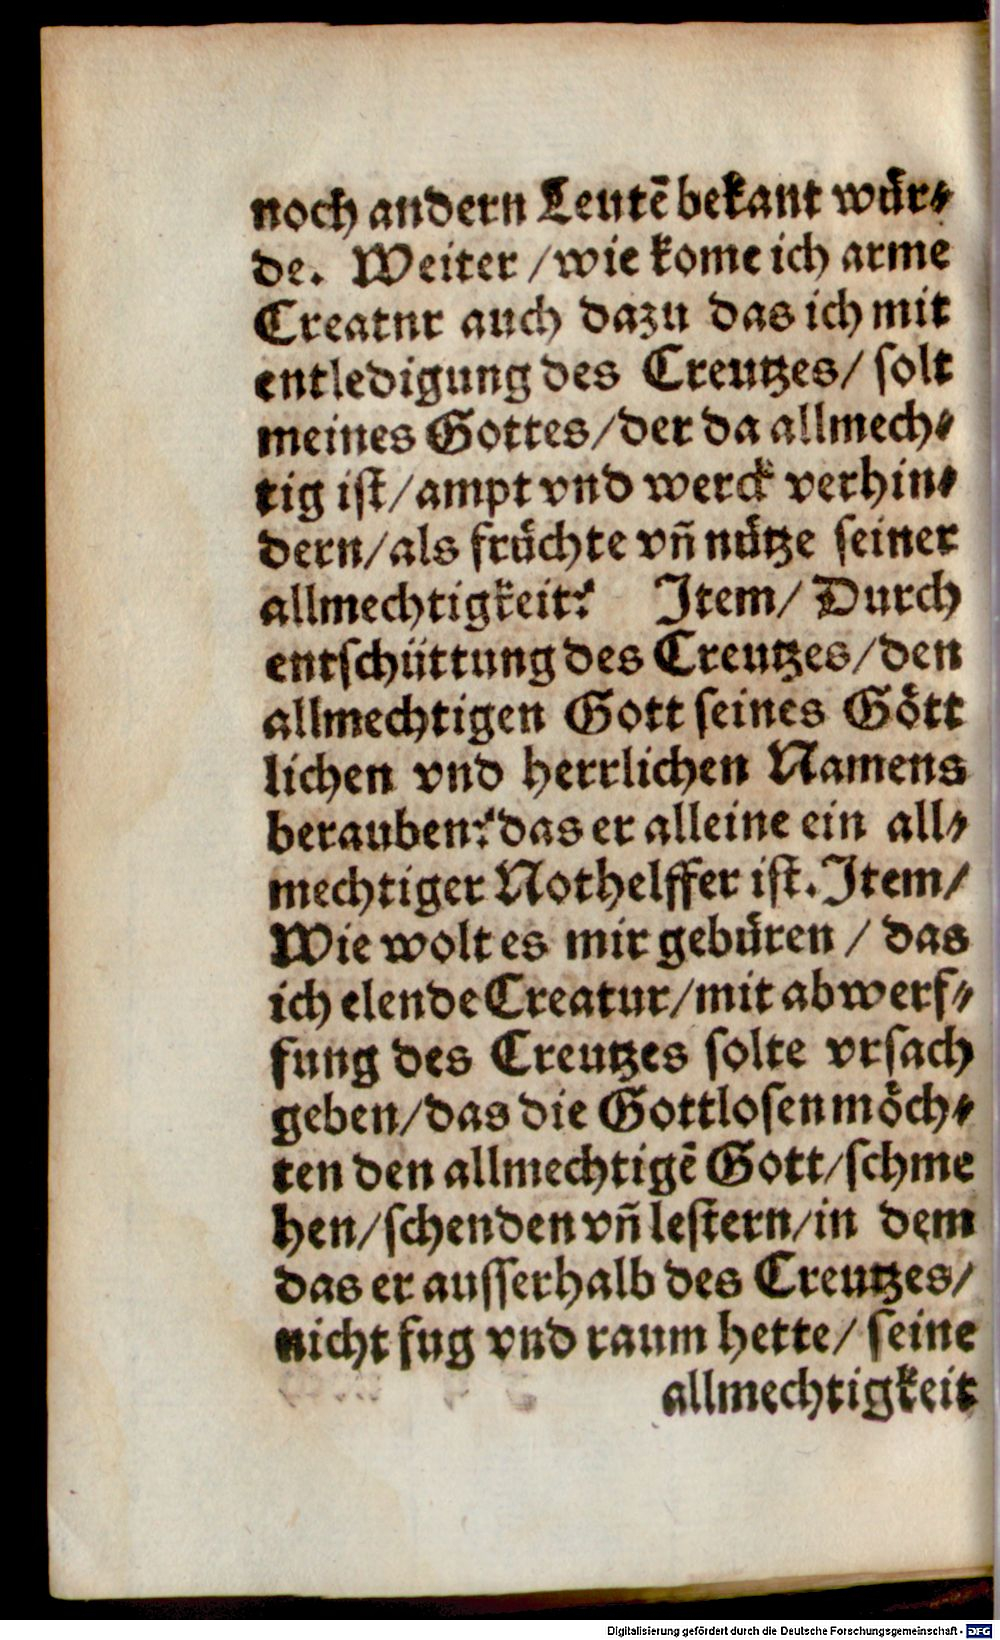 noch andern Leutē bekant wuͤr⸗
de. Weiter / wie kome ich arme
Creatur auch dazu das ich mit
entledigung des Creutzes / solt
meines Gottes / der da allmech⸗
tig ist / ampt vnd werck verhin⸗
dern / als fruͤchte vñ nuͤtze seiner
allmechtigkeit? Item / Durch
entschüttung des Creutzes / den
allmechtigen Gott seines Goͤtt
lichen vnd herrlichen Namens
berauben? das er alleine ein all⸗
mechtiger Nothelffer ist. Item /
Wie wolt es mir gebuͤren / das
ich elende Creatur / mit abwerf⸗
fung des Creutzes solte vrsach
geben / das die Gottlosen moͤch⸗
ten den allmechtigē Gott / schme
hen / schenden vñ lestern / in dem
das er ausserhalb des Creutzes /
nicht fug vnd raum hette / seine
allmechtigkeit
Digitalisierung gefördert durch die Deutsche Forschungsgemeinschaft - DFG